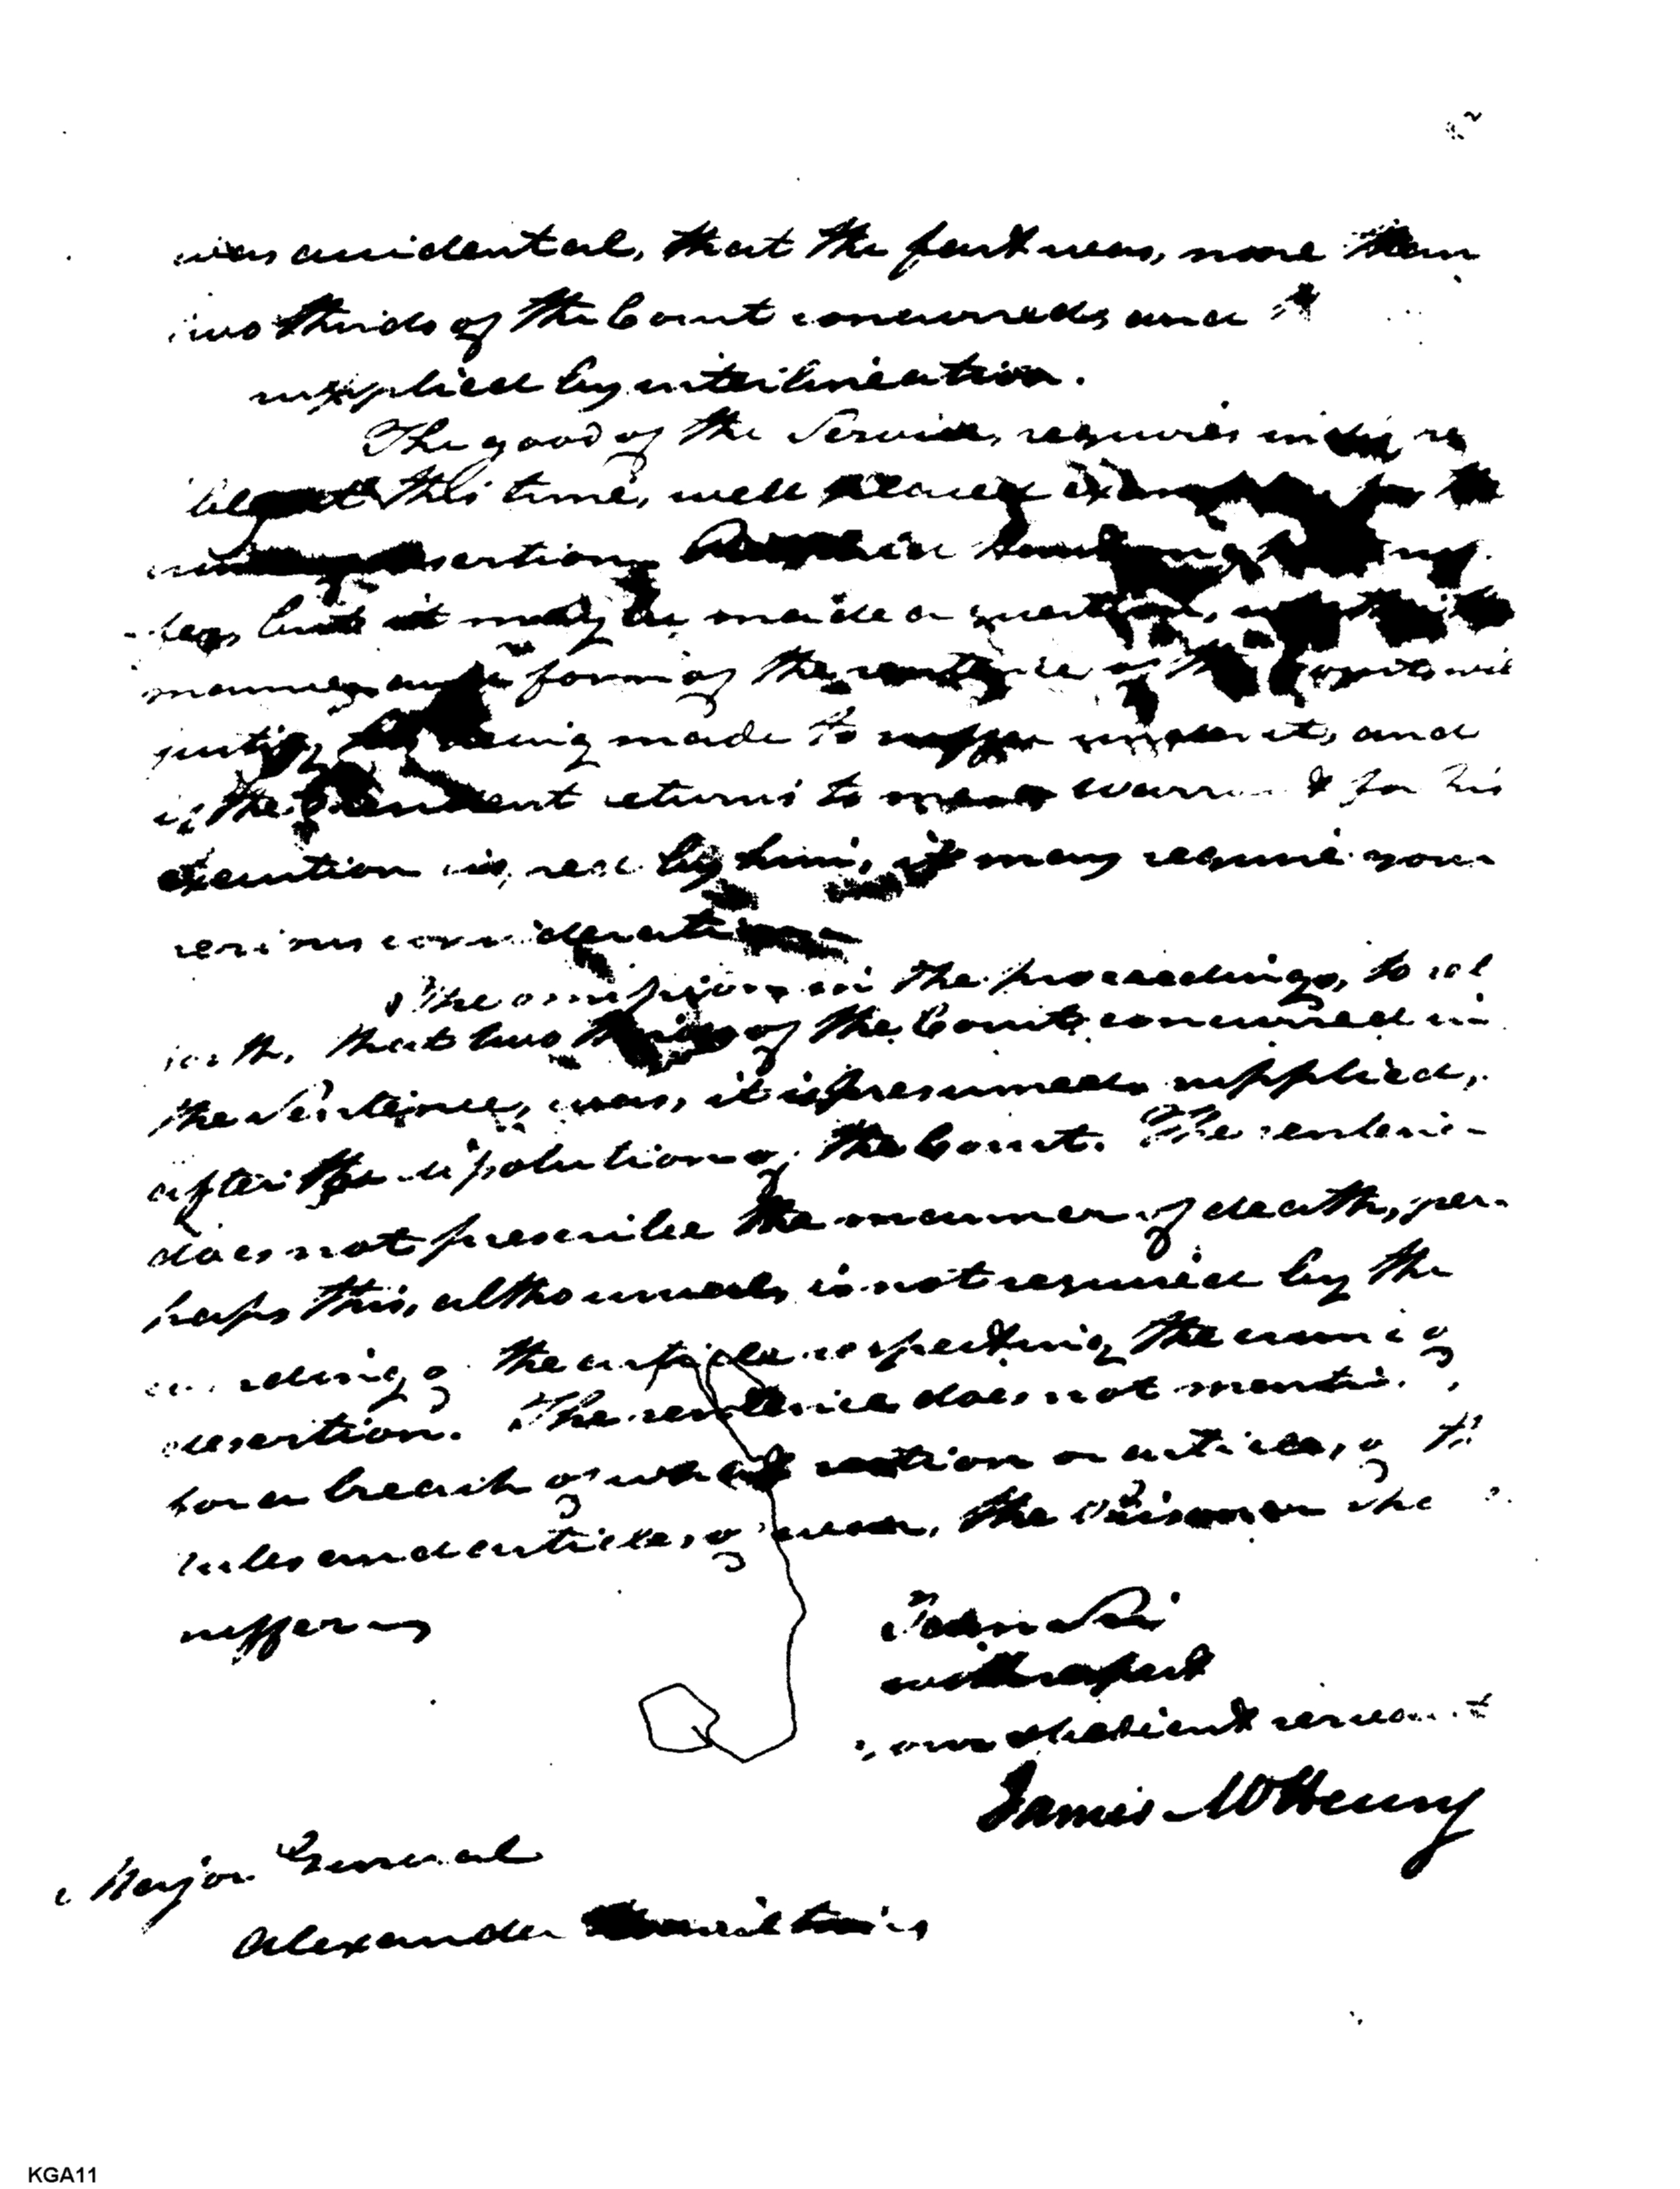 was accidental, that the fact was, more than
two thirds of the Court concurred, and
supplied by interlineation.
The good of the Service, requires
this time, well
desertion,
but it may be made a question,
manner and form of the sentence of the Court will
justify his being made to suffer under it, and
if the President returns to me a warrant for his
execution by him, it may require your
serious consideration
The omission in the proceedings, to set
forth, that two thirds of the Court concurred in
the Sentence, was, it is presumed supplied,
after the dissolution of the Court. The sentence
does not prescribe the manner of death, per-
haps this, altho usual, is not required by the
wording of the article respecting the crime of
desertion. The sentence does not mention
for a breach of what section or articles, of the
rules and articles, of war, the Prisoner
suffers
I am Sir
with respect
your obedient servant
James McHenry
Major General
Alexander Hamilton
KGA11